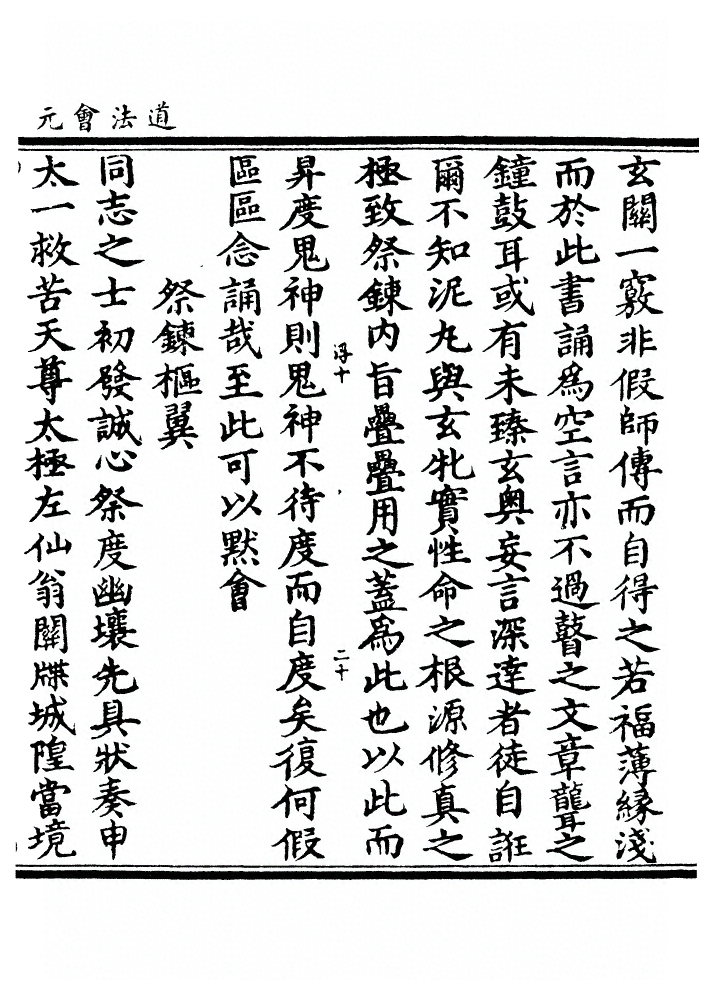 道法會元
玄關一竅非假師傳而自得之若福薄緣淺
而於此書誦為空言亦不過瞽之文章聾之
鐘鼓耳或有未臻玄奧妄言深達者徒自誑
爾不知泥丸與玄牝實性命之根源修真之
極致祭鍊內旨疊疊用之蓋為此也以此而
浮十
二十
昇度鬼神則鬼神不待度而自度矣復何假
區區念誦哉至此可以默會
祭鍊樞翼
同志之士初發誠心祭度幽壤先具狀奏申
太一救苦天尊太極左仙翁關牒城隍當境